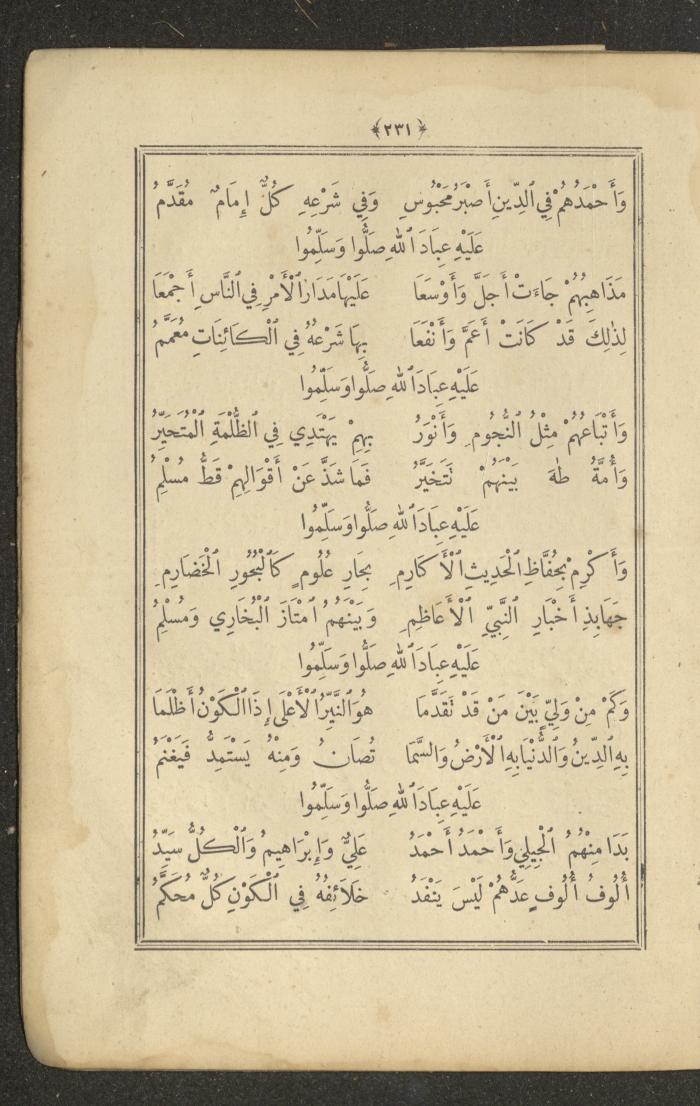 ﴿٢٣١﴾
وَأَحْمَدُهُمْ فِي ٱلدِّينِ أَصْبَرُ مَحْبُوسِ وَفِي شَرْعِهِ كُلٌّ إِمَامٌ مُقَدَّمُ
عَلَيْهِ عِبَادَ ٱللهِ صَلُّوا وَسَلِّمُوا
مَذَاهِبُهُمْ جَاءَتْ أَجَلَّ وَأَوْسَعَا عَلَيْهَا مَدَارُ ٱلْأَمْرِ فِي ٱلنَّاسِ أَجْمَعَا
لِذٰلِكَ قَدْ كَانَتْ أَعَمَّ وَأَنْفَعَا بِهَا شَرْعُهُ فِي ٱلْكَائِنَاتِ مُعَمَّمُ
عَلَيْهِ عِبَادَ ٱللهِ صَلُّوا وَسَلِّمُوا
وَأَتْبَاعُهُمْ مِثْلُ ٱلنُّجُومِ وَأَنْوَرُ بِهِمْ يَهْتَدِي فِي ٱلظُّلْمَةِ ٱلْمُتَحَيِّرُ
وَأُمَّةُ طٰهَ بَيْنَهُمْ تَتَخَيَّرُ فَمَا شَذَّ عَنْ أَقْوَالِهِمْ قَطُّ مُسْلِمُ
عَلَيْهِ عِبَادَ ٱللهِ صَلُّوا وَسَلِّمُوا
وَأَكْرِمْ بِحُفَّاظِ ٱلْحَدِيثِ ٱلْأَكَارِمِ بِحَارِ عُلُومٍ كَٱلْبُحُورِ ٱلْخَضَارِمِ
جَهَابِذِ أَخْبَارِ ٱلنَّبِيِّ ٱلْأَعَاظِمِ وَبَيْنَهُمُ ٱمْتَازَ ٱلْبُخَارِي وَمُسْلِمُ
عَلَيْهِ عِبَادَ ٱللهِ صَلُّوا وَسَلِّمُوا
وَكَمْ مِنْ وَلِيٍّ بَيْنَ مَنْ قَدْ تَقَدَّمَا هُوَ ٱلنَّيِّرُ ٱلْأَعْلَى إِذَا ٱلْكَوْنُ أَظْلَمَا
بِهِ ٱلدِّينُ وَٱلدُّنْيَا بِهِ ٱلْأَرْضُ وَٱلسَّمَا تُصَانُ وَمِنْهُ يَسْتَمِدُّ فَيَغْنَمُ
عَلَيْهِ عِبَادَ ٱللهِ صَلُّوا وَسَلِّمُوا
بَدَا مِنْهُمُ ٱلْجِيلِي وَأَحْمَدُ أَحْمَدُ عَلِيٌّ وَإِبْرَاهِيمُ وَٱلْكُلُّ سَيِّدُ
أُلُوفُ أُلُوفٍ عَدُّهُمْ لَيْسَ يَنْفَدُ خَلَائِفُهُ فِي ٱلْكَوْنِ كُلٌّ مُحَكَّمُ